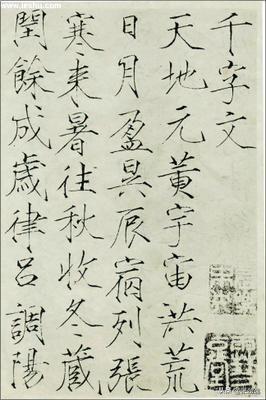 千字文
天地元黄宇宙洪荒
日月盈昃辰宿列張
寒来暑往秋收冬藏
閏餘成歲律吕調陽